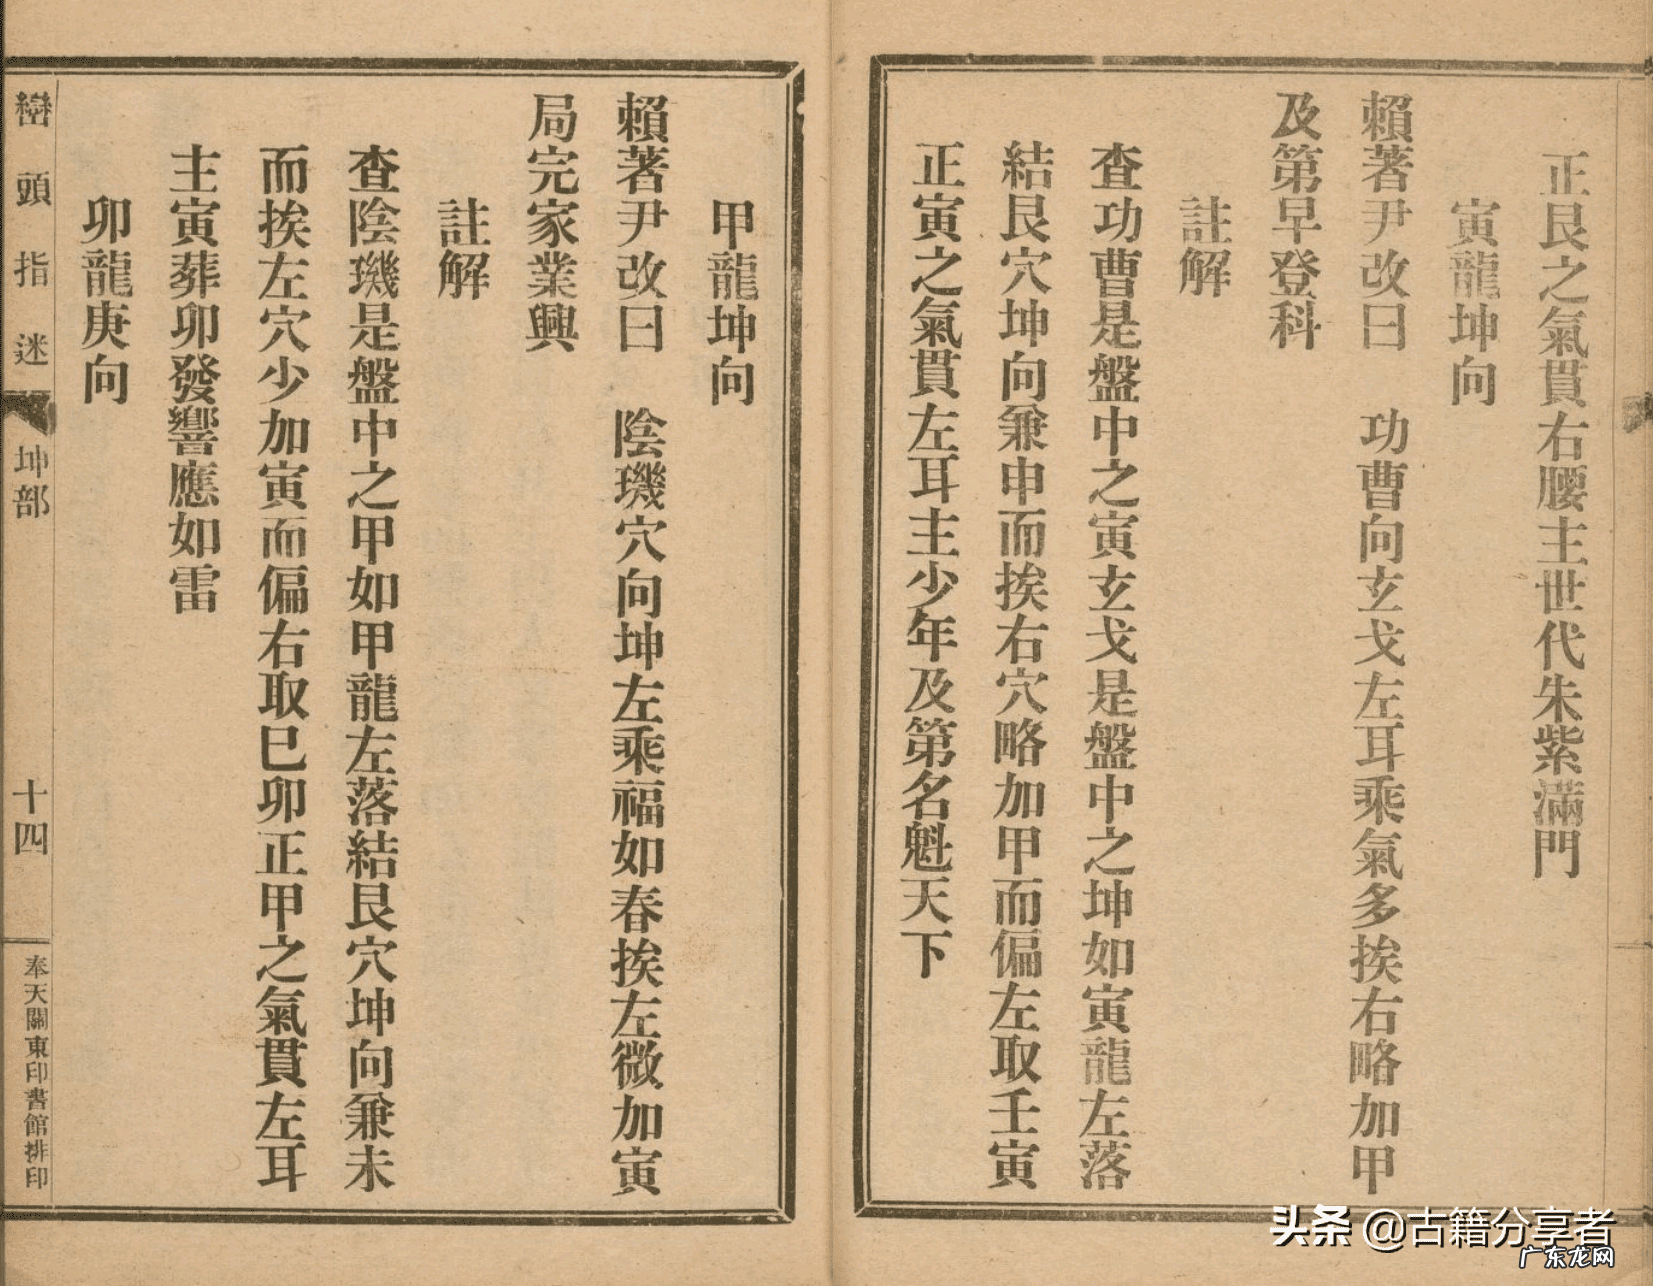 正艮之氣貫右腰主世代朱紫滿門
寅龍坤向
賴著尹改曰　功曹向玄戈左耳乘氣多挨右略加甲
及第早登科
註解
查功曹是盤中之寅玄戈是盤中之坤如寅龍左落
結艮穴坤向兼申而挨右穴略加甲而偏左取壬寅
正寅之氣貫左耳主少年及第名魁天下
甲龍坤向
賴著尹改曰　陰璣穴向坤左乘福如春挨左微加寅
局完家業興
註解
查陰璣是盤中之甲如甲龍左落結艮穴坤向兼未
而挨左穴少加寅而偏右取巳卯正甲之氣貫左耳
主寅葬卯發響應如雷
卯龍庚向
巒頭指迷
坤部
十四
奉天關東印書館排印
头条 @古籍分享者
广东龙网